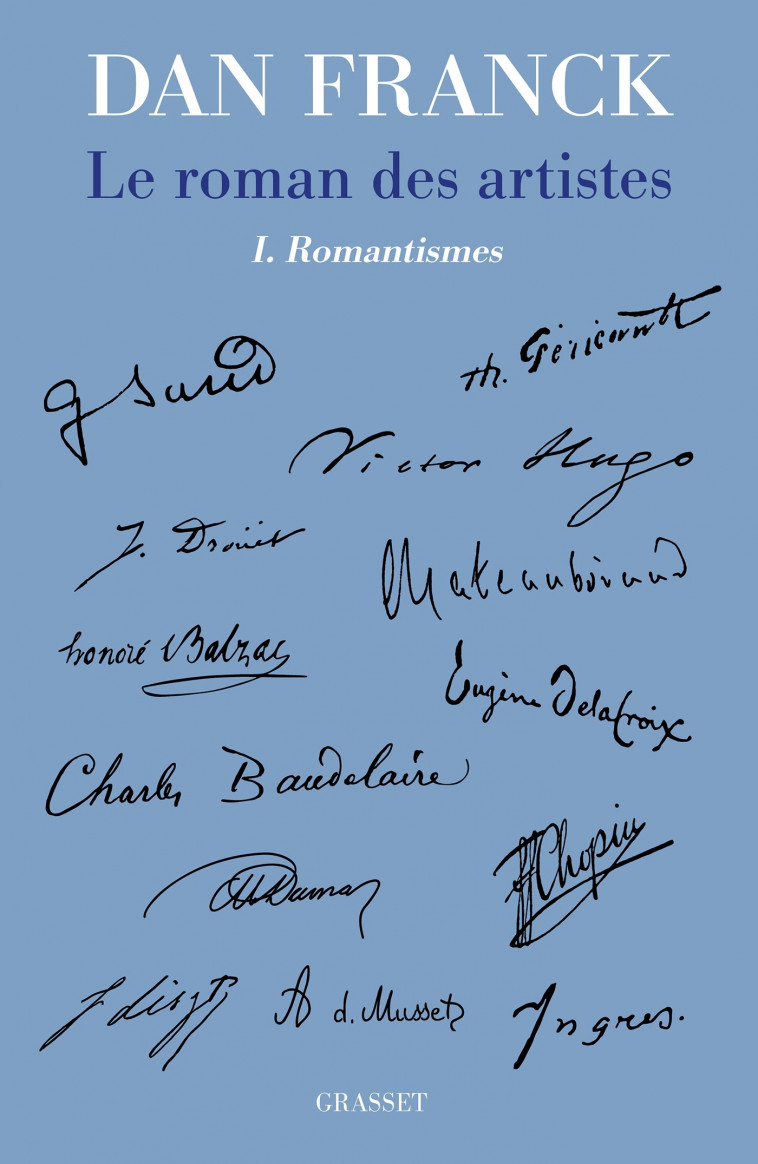 DAN FRANCK
Le roman des artistes
I. Romantismes
G Sand
th. Géricault
Victor Hugo
J. Drouet
Chateaubriand
honoré Balzac
Eugène Delacroix
Charles Baudelaire
Chopin
Dumas
F Liszt
A d. Musset
Ingres.
GRASSET